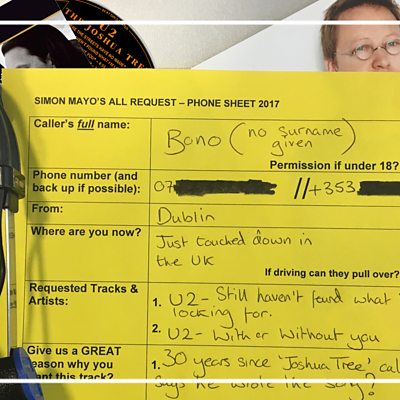 U2
THE JOSHUA TREE
SIMON MAYO'S ALL REQUEST – PHONE SHEET 2017
Caller's full name:
Bono (no surname given)
Permission if under 18?
Phone number (and back up if possible):
07 // +353
From:
Dublin
Where are you now?
Just touched down in
the UK
If driving can they pull over?
Requested Tracks &
Artists:
1. U2 - Still haven't found what
looking for.
2. U2 - With or Without you
Give us a GREAT
reason why you
want this track?
1. 30 years since 'Joshua Tree' cal
says he wrote the song?